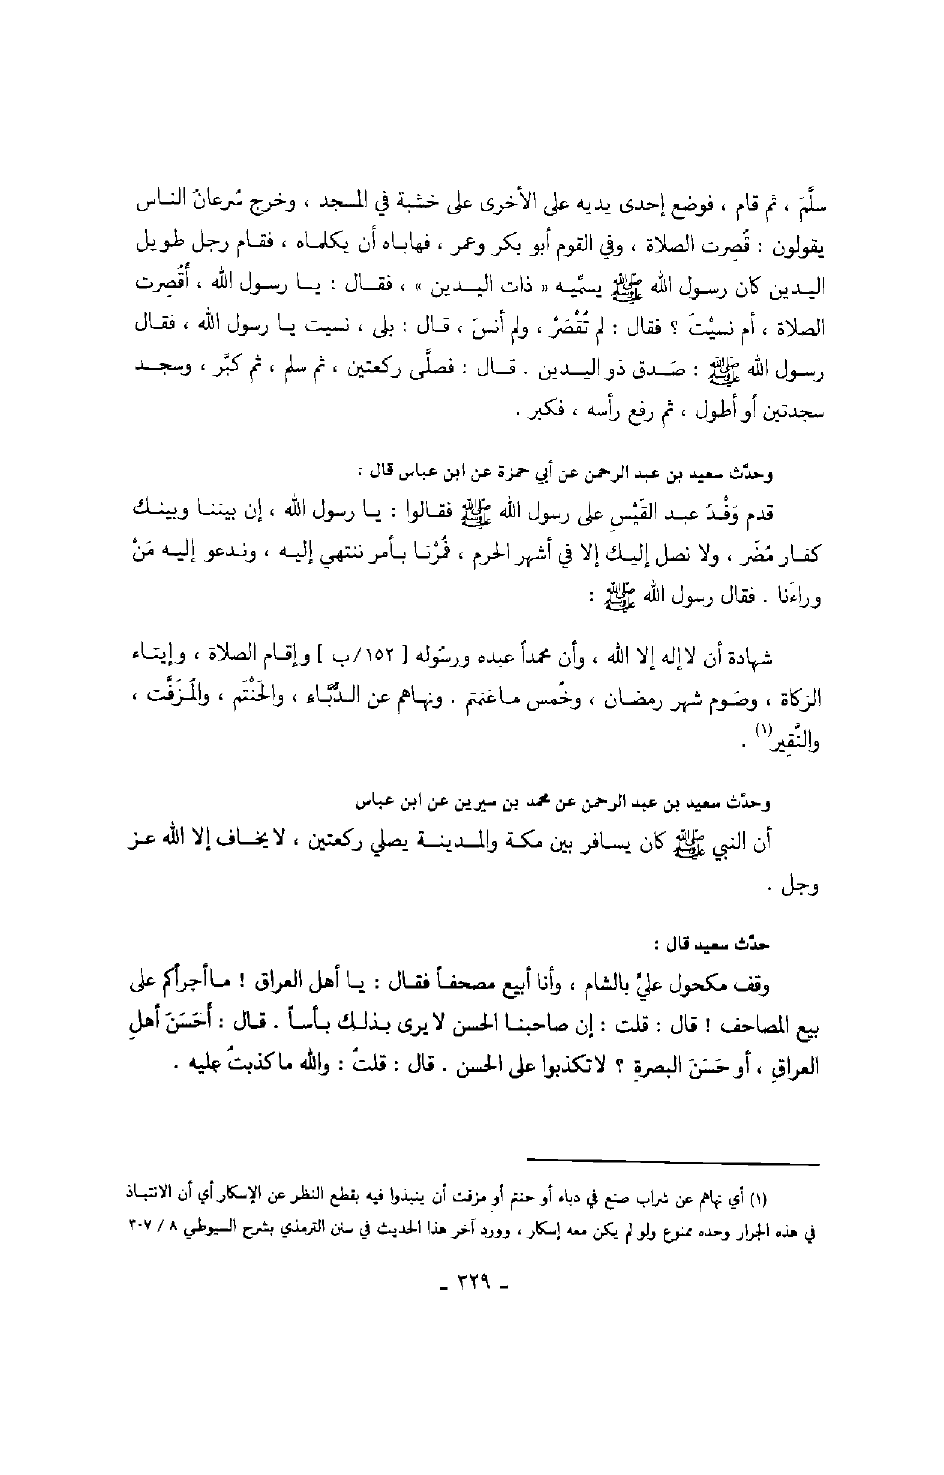 سلَّمَ ، ثم قام ، فوضع إحدى يديه على الأخرى على خشبة في المسجد ، وخرج سُرعانُ الناس
يقولون : قُصِرت الصلاة ، وفي القوم أبو بكر وعمر ، فهاباه أن يكلماه ، فقام رجل طويل
اليدين كان رسول الله ﷺ يسمِّيه « ذات اليدين » ، فقال : يا رسول الله ، أَقُصِرت
الصلاة ، أم نسيْتَ ؟ فقال : لم تُقْصَرْ ، ولم أنسَ ، قال : بلى ، نسيت يا رسول الله ، فقال
رسول الله ﷺ : صَدق ذو اليدين . قال : فصلَّى ركعتين ، ثم سلم ، ثم كبَّر ، وسجد
سجدتين أو أطول ، ثم رفع رأسه ، فكبر .
وحدَّث سعيد بن عبد الرحمن عن أبي حمزة عن ابن عباس قال :
قدم وَفْدُ عبد القَيْس على رسول الله ﷺ فقالوا : يا رسول الله ، إن بيننا وبينك
كفار مُضَر ، ولا نصل إليك إلا في أشهر الحرم ، فُرْنا بأمر ننتهي إليه ، وندعو إليه مَنْ
وراءَنا . فقال رسول الله ﷺ :
شهادة أن لاإله إلا الله ، وأن محمداً عبده ورسُوله [ ١٥٢/ب ] وإقام الصلاة ، وإيتاء
الزكاة ، وصَوم شهر رمضان ، وخُمس ماغنتم . ونهاهم عن الدُّبَّاء ، والحَنْتَم ، والمُزَفَّت ،
والنَّقِير(١) .
وحدَّث سعيد بن عبد الرحمن عن محمد بن سيرين عن ابن عباس
أن النبي ﷺ كان يسافر بين مكة والمدينة يصلي ركعتين ، لايخاف إلا الله عز
وجل .
حدَّث سعيد قال :
وقف مكحول عليَّ بالشام ، وأنا أبيع مصحفاً فقال : يا أهل العراق ! ماأجرأكم على
بيع المصاحف ! قال : قلت : إن صاحبنا الحسن لا يرى بذلك بأساً . قال : أحَسَنَ أهلِ
العراقِ ، أو حَسَنَ البصرةِ ؟ لاتكذبوا على الحسن . قال : قلتُ : والله ماكذبتُ عليه .
(١) أي نهاهم عن شراب صنع في دباء أو حنتم أو مزفت أن ينبذوا فيه بقطع النظر عن الإسكار أي أن الانتباذ
في هذه الجرار وحده ممنوع ولو لم يكن معه إسكار ، وورد آخر هذا الحديث في سنن الترمذي بشرح السيوطي ٨ / ٣٠٧
ـ ٣٢٩ ـ